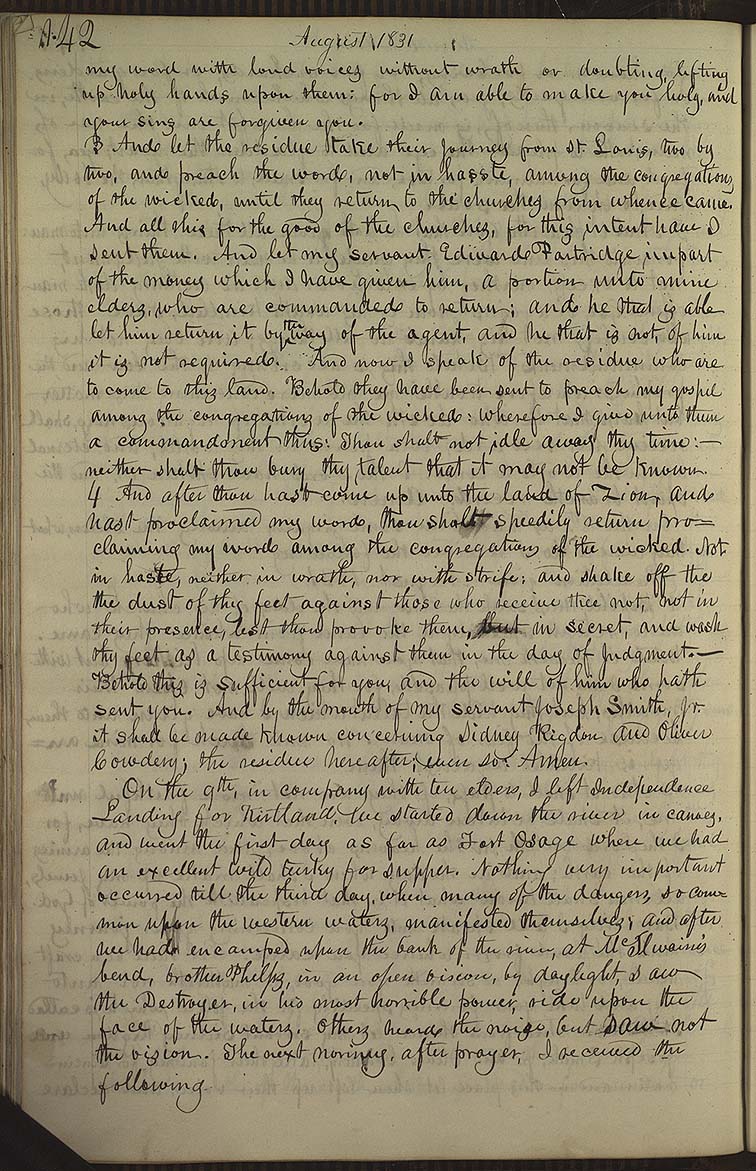 142
August 1831
my word with loud voices without wrath or doubting, lifting
up holy hands upon them: for I am able to make you holy, and
your sins are forgiven you.
3 And let the residue take their journey from St. Louis, two by
two, and preach the word, not in haste, among the congregations
of the wicked, until they return to the churches from whence came.
And all this for the good of the churches, for this intent have I
sent them. And let my servant Edward Partridge impart
of the money which I have given him, a portion unto mine
elders, who are commanded to return; and he that is able
let him return it by the way of the agent, and he that is not, of him
it is not required. And now I speak of the residue who are
to come to this land. Behold they have been sent to preach my gospil
among the congregations of the wicked: wherefore I give unto them
a commandment thus: Thou shalt not idle away thy time:—
neither shalt thou bury thy talent that it may not be known.
4 And after thou hast come up unto the land of Zion, and
hast proclaimed my word, thou shalt speedily return pro=
claiming my word among the congregations of the wicked. Not
in haste, neither in wrath, nor with strife; and shake off the
the dust of thy feet against those who receive thee not, not in
their presence, lest thou provoke them, but in secret, and wash
thy feet as a testimony against them in the day of judgment.—
Behold this is sufficient for you, and the will of him who hath
sent you. And by the mouth of my servant Joseph Smith, jr.
it shall be made known concerning Sidney Rigdon and Oliver
Cowdery; the residue hereafter; even so: Amen.
On the 9th, in company with ten elders, I left Independence
Landing for Kirtland. We started down the river in canoes,
and went the first day as far as Fort Osage where we had
an excellent wild turky for supper. Nothing very important
occurred till the third day, when many of the dangers, so com=
mon upon the western waters, manifested themselves; and after
we had encamped upon the bank of the river, at McIlwain's
bend, brother Phelps, in an open vision, by daylight, saw
the Destroyer, in his most horrible power, ride upon the
face of the waters. Others heard the noise, but saw not
the vision. The next morning, after prayer, I received the
following